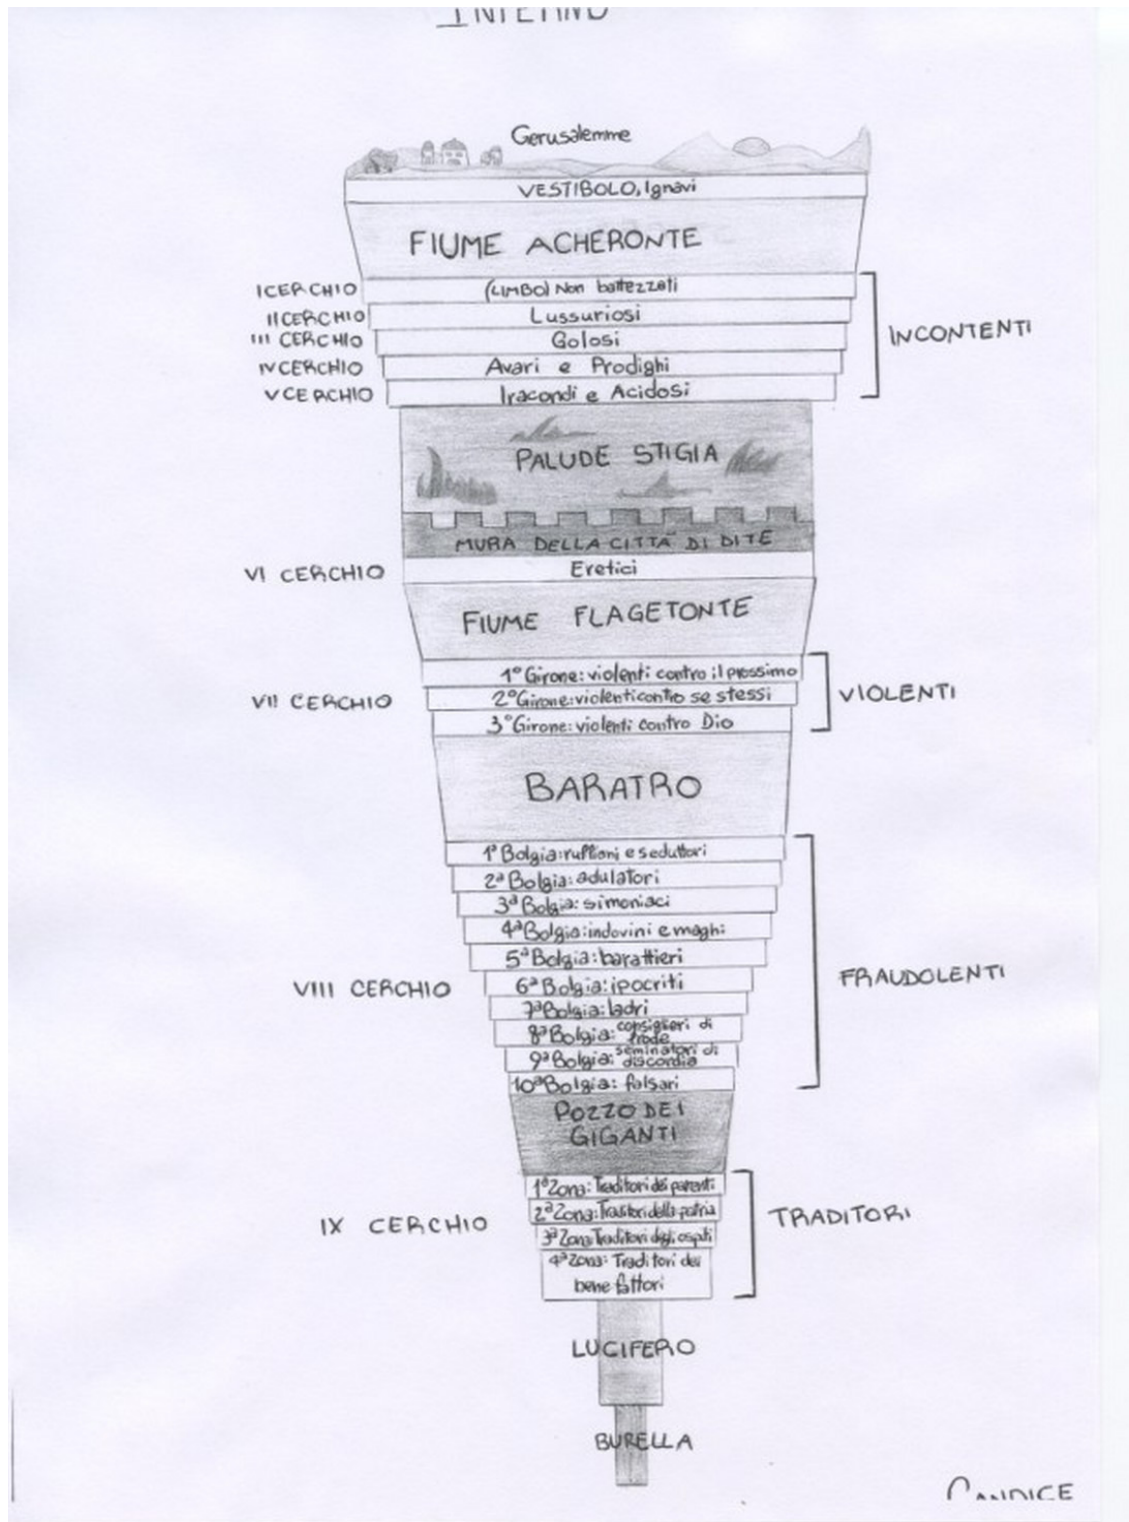 INFERNO
Gerusalemme
VESTIBOLO, Ignavi
FIUME ACHERONTE
I CERCHIO (LIMBO) Non battezzati
II CERCHIO Lussuriosi
III CERCHIO Golosi
IV CERCHIO Avari e Prodighi
V CERCHIO Iracondi e Acidosi
INCONTENTI
PALUDE STIGIA
MURA DELLA CITTÀ DI DITE
VI CERCHIO Eretici
FIUME FLAGETONTE
1° Girone: violenti contro il prossimo
VII CERCHIO 2° Girone: violenti contro se stessi
3° Girone: violenti contro Dio
VIOLENTI
BARATRO
1ª Bolgia: ruffiani e seduttori
2ª Bolgia: adulatori
3ª Bolgia: simoniaci
4ª Bolgia: indovini e maghi
5ª Bolgia: barattieri
VIII CERCHIO 6ª Bolgia: ipocriti
FRAUDOLENTI
7ª Bolgia: ladri
8ª Bolgia: consiglieri di frode
9ª Bolgia: seminatori di discordia
10ª Bolgia: falsari
POZZO DEI
GIGANTI
1ª Zona: Traditori dei parenti
2ª Zona: Traditori della patria
IX CERCHIO
TRADITORI
3ª Zona: Traditori degli ospiti
4ª Zona: Traditori dei
benefattori
LUCIFERO
BURELLA
CANDICE